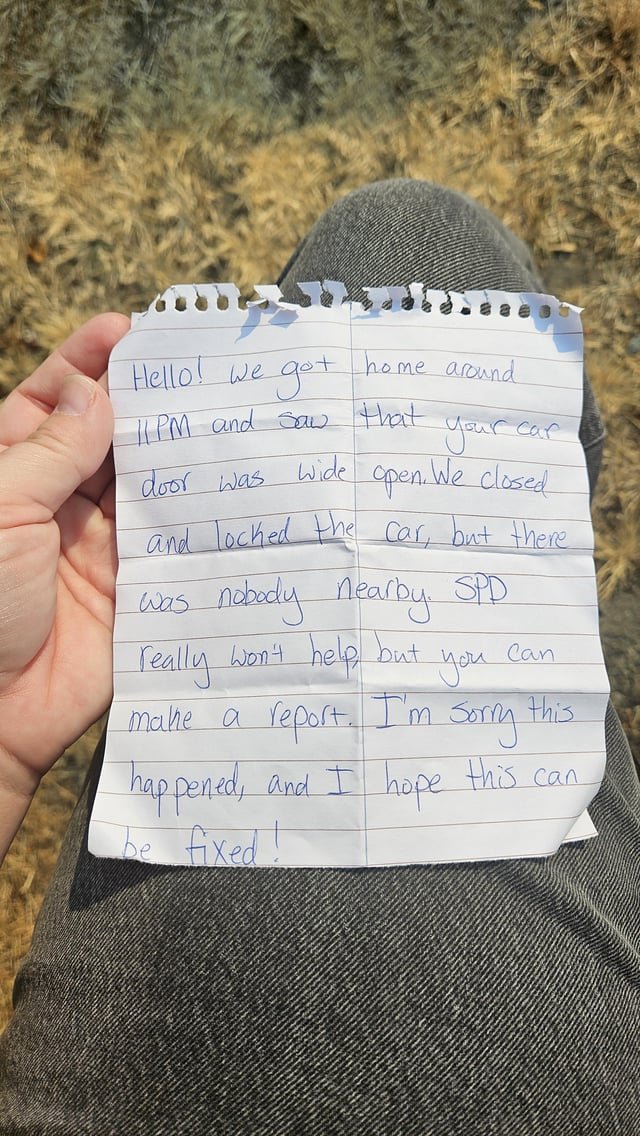 Hello! We got home around
11PM and saw that your car
door was wide open. We closed
and locked the car, but there
was nobody nearby. SPD
really won't help, but you can
make a report. I'm sorry this
happened, and I hope this can
be fixed!